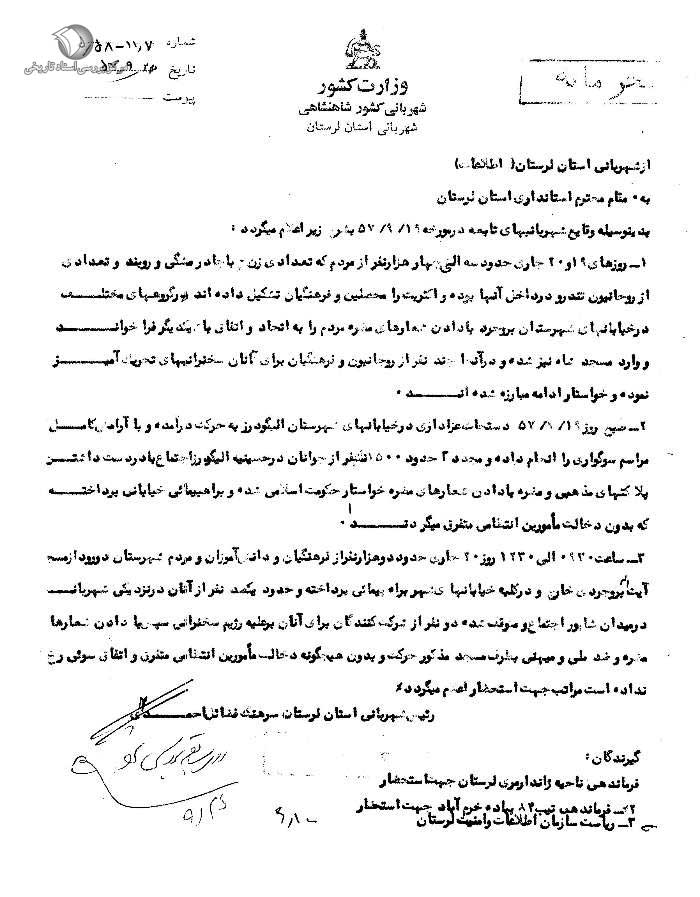 شماره ۱۱۰۷-۵۸
تاریخ
پیوست
مرکز بررسی اسناد تاریخی
محرمانه
وزارت کشور
شهربانی کشور شاهنشاهی
شهربانی استان لرستان
از شهربانی استان لرستان( اطلاعات)
به مقام محترم استانداری استان لرستان
بدینوسیله وقایع شهربانیهای تابعه در مورخه ۵۷/۹/۱۹ بشرح زیر اعلام میگردد :
۱ـ روزهای ۱۹و۲۰ جاری حدود سه الی چهار هزار نفر از مردم که تعدادی زن با چادر مشگی و روبند و تعدادی
از روحانیون تندرو در داخل آنها بوده و اکثریت را محصلین و فرهنگیان تشکیل داده اند در گروههای مختلف
در خیابانهای شهرستان بروجرد با دادن شعارهای مضره مردم را به اتحاد و اتفاق با یکدیگر فرا خوانده
و وارد مسجد شاه نیز شده و در آنجا چند نفر از روحانیون و فرهنگیان برای آنان سخنرانیهای تحریک آمیز
نموده و خواستار ادامه مبارزه شده اند
۲ـ صبح روز ۵۷/۹/۱۹ دستجات عزاداری در خیابانهای شهرستان الیگودرز به حرکت درآمده و با آرامش کامل
مراسم سوگواری را انجام داده و مجدد حدود ۱۵۰۰ نفر از جوانان در حسینیه الیگودرز اجتماع بادر دست داشتن
پلاکتهای مذهبی و مضره با دادن شعارهای مضره خواستار حکومت اسلامی شده و براهپیمائی خیابانی پرداخته
که بدون دخالت مأمورین انتظامی متفرق میگردند
۳ـ ساعت ۰۹۳۰ الی ۱۲۳۰ روز ۲۰ جاری حدود دو هزار نفر از فرهنگیان و دانش آموزان و مردم شهرستان دورود از مسجد
آیت اله بروجردی خارج و در کلیه خیابانهای شهر براه پیمائی پرداخته و حدود یکصد نفر از آنان در نزدیکی شهربانی
در میدان شاپور اجتماع و متوقف شده دو نفر از شرکت کنندگان برای آنان برعلیه رژیم سخنرانی سپس با دادن شعارهای
مضره و ضد ملی و میهنی بطرف مسجد مذکور حرکت و بدون هیچگونه دخالت مأمورین انتظامی متفرق و اتفاق سوئی رخ
نداده است مراتب جهت استحضار اعلام میگردد٪
رئیس شهربانی استان لرستان سرهنگ فضائل احمدی
گیرندگان :
فرماندهی ناحیه ژاندارمری لرستان جهت استحضار
۲ـ فرماندهی تیپ ۸۴ پیاده خرم آباد جهت استحضار
۳ـ ریاست سازمان اطلاعات و امنیت لرستان